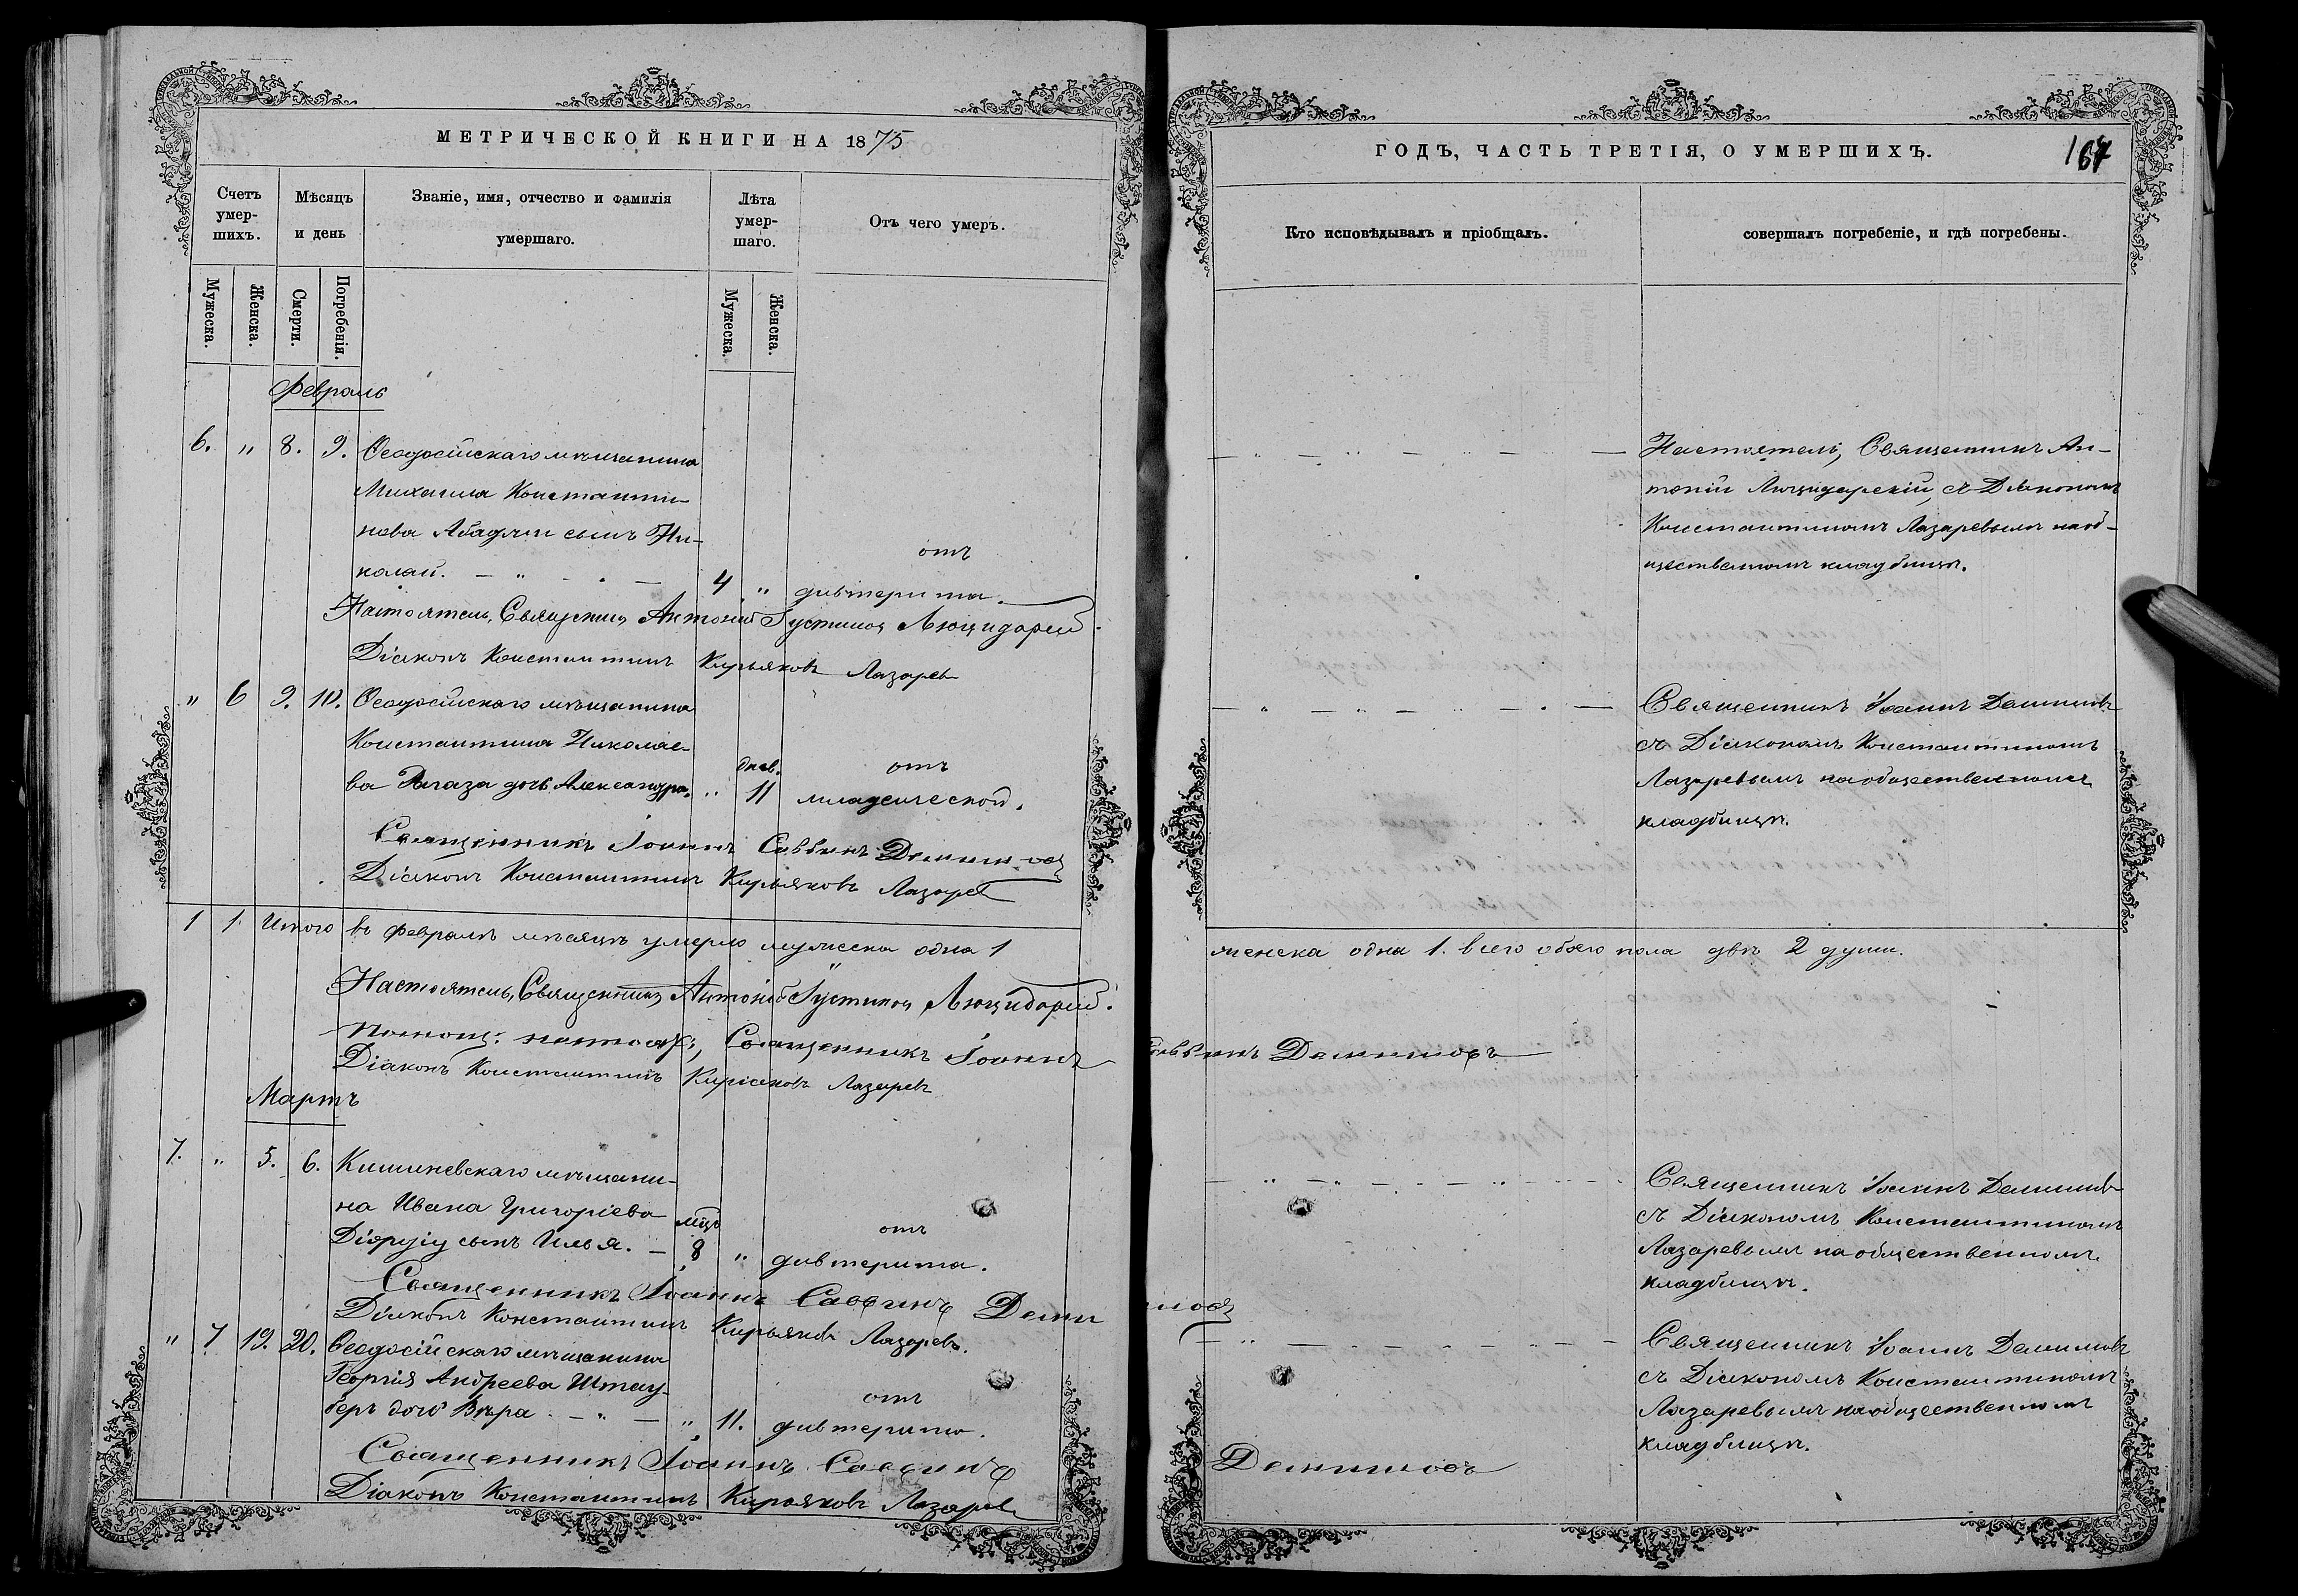 МЕТРИЧЕСКОЙ КНИГИ НА 1875
Счетъ умер-шихъ.
Мѣсяцъ и день
Званіе, имя, отчество и фамилія умершаго.
Лѣта умер-шаго.
Отъ чего умеръ.
Мужеска.
Женска.
Смерти.
Погребенія.
Мужеска.
Женска.
Февраль
6. " 8. 9. Ѳеодосійскаго мѣщанина
Михаила Константи-
нова Абаджи сынъ Ни-
отъ
колай. — " — . — 4 " дивтерита.
Настоятель, Священникъ Антоній Іустиновъ Люцидарскій.
Діаконъ Константинъ Кирьяковъ Лазаревъ
" 6 9. 10. Ѳеодосійскаго мѣщанина
Константина Николае-
днев. отъ
ва дочь Александра. " 11 младенческой.
Священникъ Іоаннъ Саввинъ Демишовъ
Діаконъ Константинъ Кирьяковъ Лазаревъ
1 1 Итого въ Февралѣ мѣсяцѣ умерло мужеска одна 1
Настоятель, Священникъ Антоній Іустиновъ Люцидарскій.
Помощ: настоят:, Священникъ Іоаннъ
Діаконъ Константинъ Киріаковъ Лазаревъ
Мартъ
7. " 5. 6. Кишиневскаго мѣщани-
на Ивана Григоріева
мѣц. отъ
сынъ Илья. — 8 " дивтерита.
Священникъ Іоаннъ Саввинъ Деми
Діаконъ Константинъ Кирьяковъ Лазаревъ.
" 7 19. 20. Ѳеодосійскаго мѣщанина
Георгія Андреева Штау-
отъ
беръ дочь Вѣра. — " — " 11. дивтерита.
Священникъ Іоаннъ Саввинъ
Діаконъ Константинъ Кирьяковъ Лазаревъ
ГОДЪ, ЧАСТЬ ТРЕТІЯ, О УМЕРШИХЪ.
167
Кто исповѣдывалъ и пріобщалъ.
совершалъ погребеніе, и гдѣ погребены.
Настоятель, Священникъ Ан-
тоній Люцидарскій, съ Діакономъ
Константиномъ Лазаревымъ на об-
щественномъ кладбищѣ.
Священникъ Іоаннъ Демишовъ
съ Діакономъ Константиномъ
Лазаревымъ на общественномъ
кладбищѣ.
женска одна 1. всего обоего пола двѣ 2 души.
Саввинъ Демишовъ
Священникъ Іоаннъ Демишовъ
съ Діакономъ Константиномъ
Лазаревымъ на общественномъ
кладбищѣ.
шовъ
Священникъ Іоаннъ Демишовъ
съ Діакономъ Константиномъ
Лазаревымъ на общественномъ
кладбищѣ.
Демишовъ